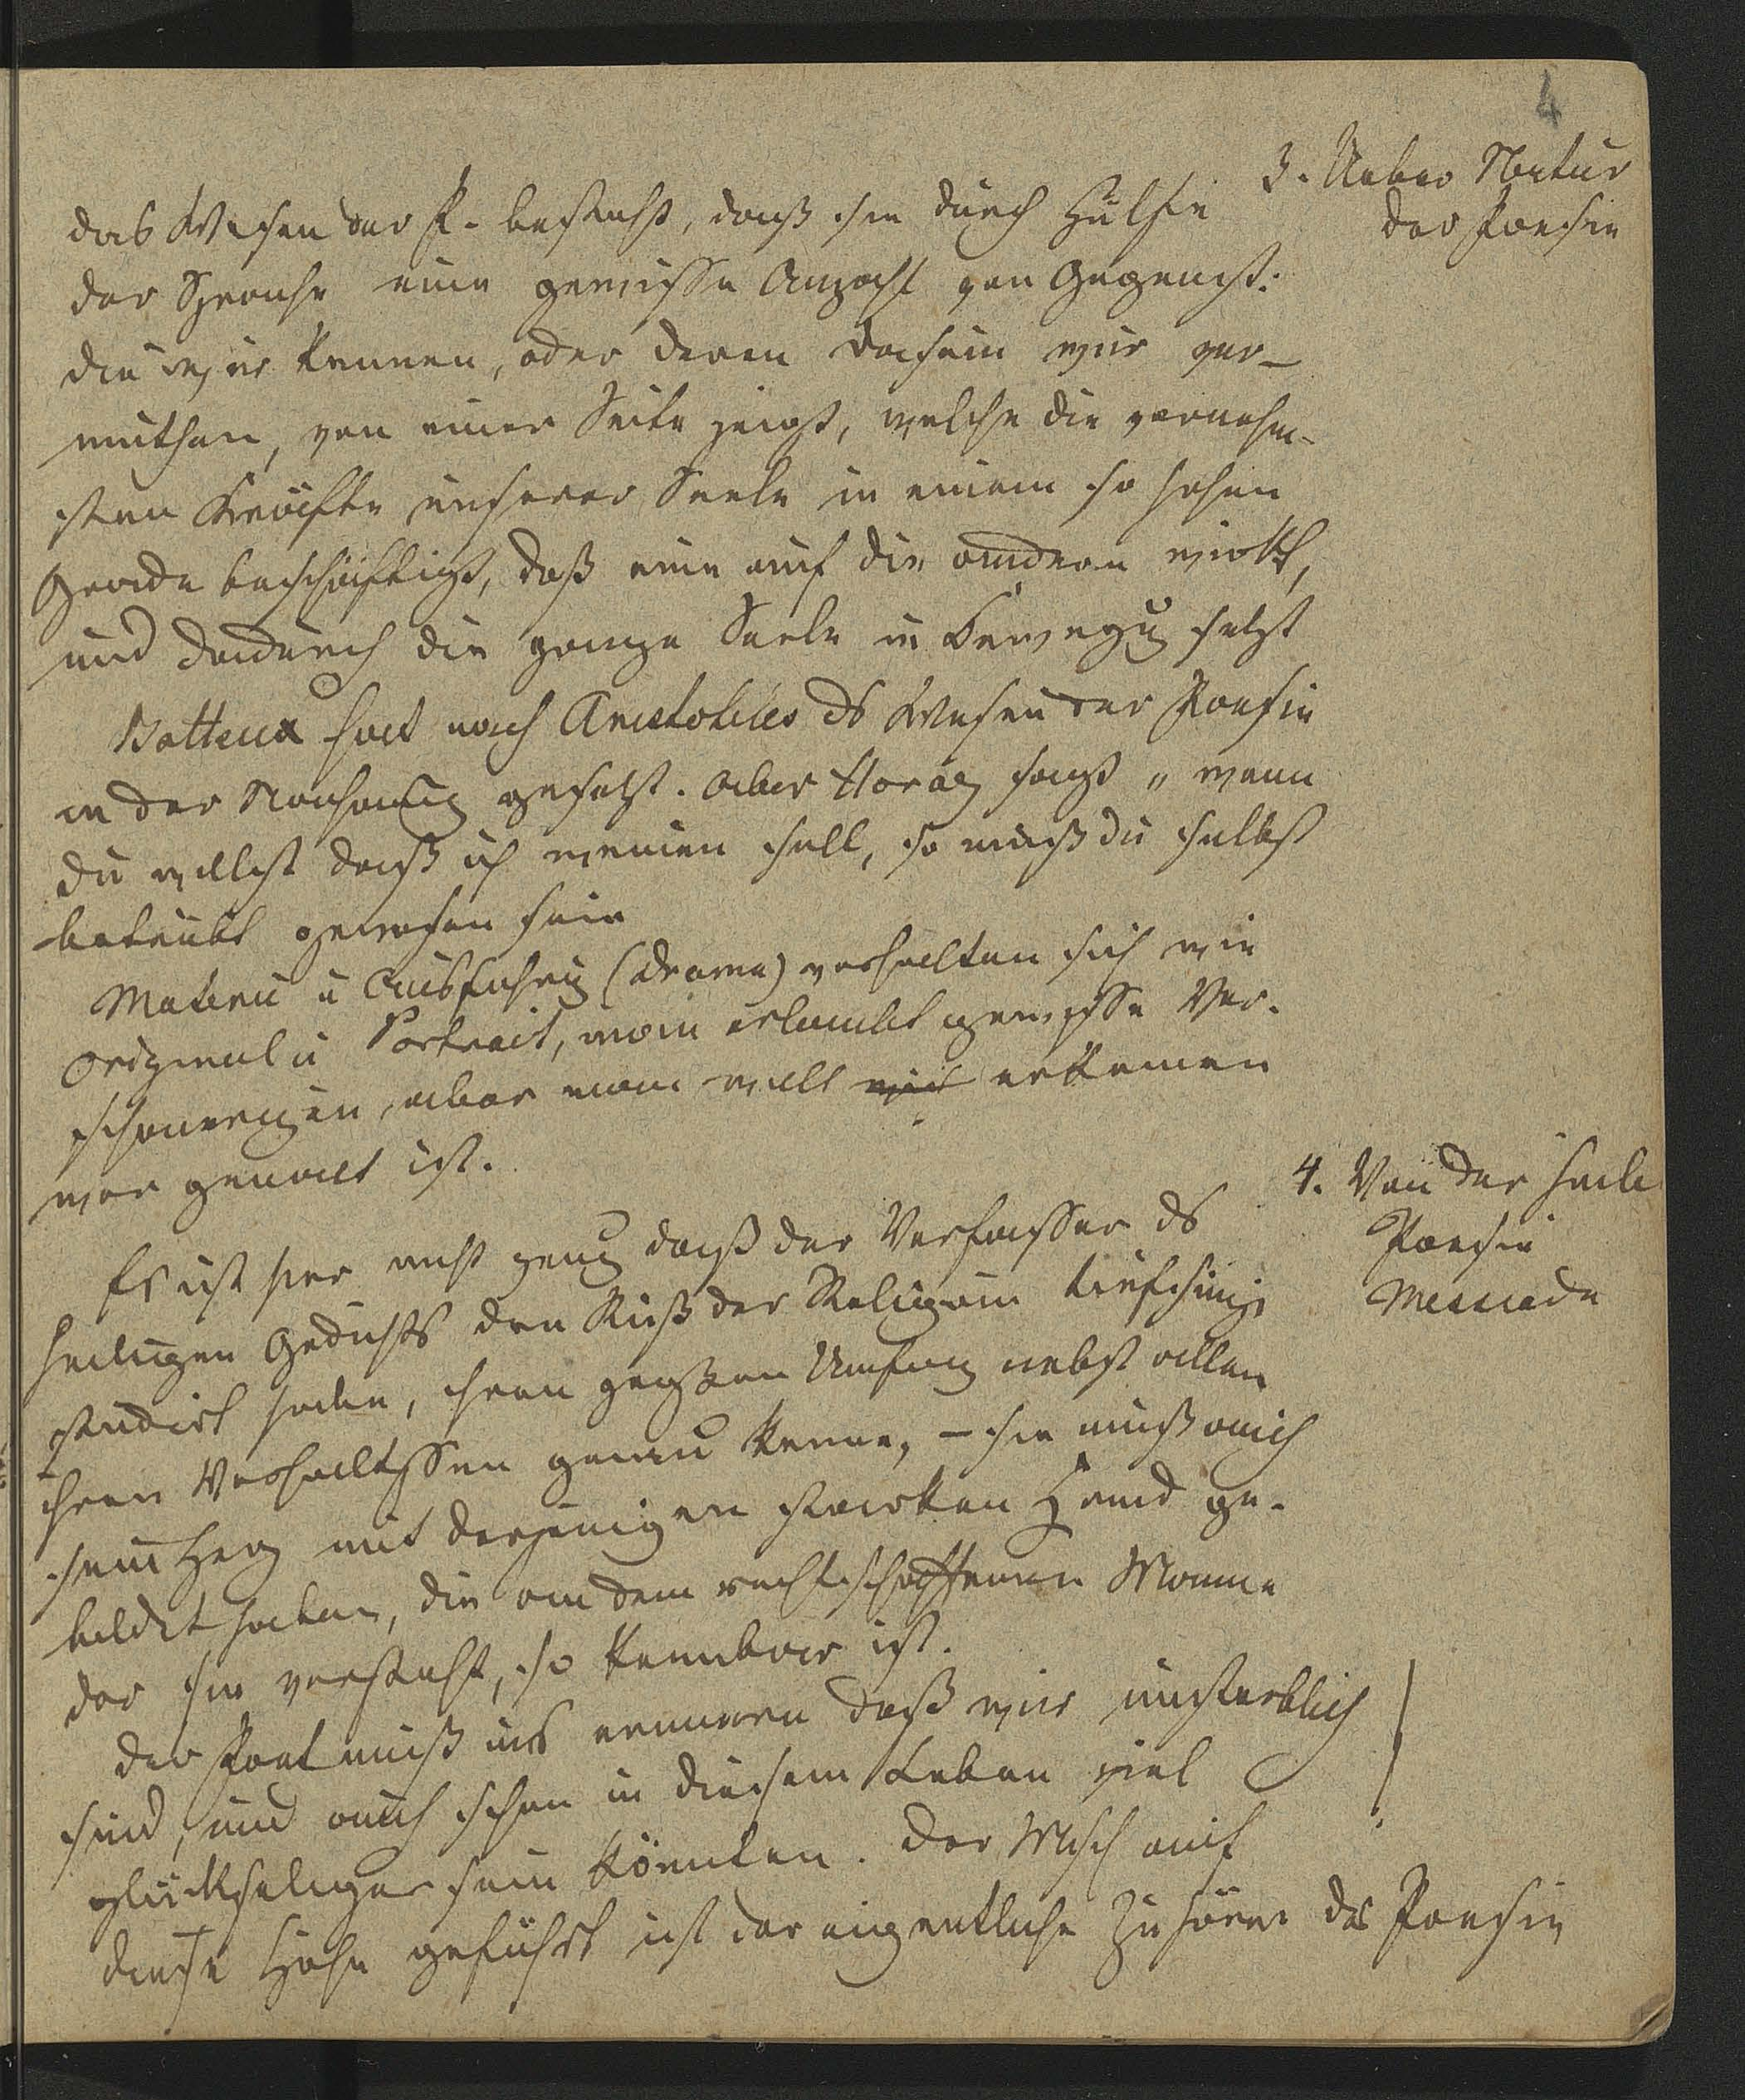 4
3. Ueber Natur
der Poesie
das Wesen der P. besteht, daß sie durch Hülfe
der Sprache eine gewisse Anzahl von Gegenst:
die wir kennen, oder deren Dasein wir ver-
muthen, von einer Seite zeigt, welche die vornehm-
sten Kräfte unserer Seele in einem so hohen
Grade beschäftigt, daß eine auf die andere wirkt,
und dadurch die ganze Seele in Bewegung setzt
Batteux hat nach Aristoteles ds Wesen der Poesie
in der Nachahmung gesetzt. Aber Horaz sagt „ wenn
du willst daß ich weinen soll, so muß du selbst
betrübt gewesen sein
Materie u Ausführung (Drama) verhalten sich wie
Original u Portrait, man erlaubt gewisse Ver-
schönerungen, aber man will erkennen
wer gemalt ist.
4. Von der heil
Poesie
Messiade
Es ist hier nicht genug daß der Verfasser ds
heiligen Gedichts den Riß der Religion tiefsinnig
studirt habe, ihren großen Umfang nebst allen
ihren Verhältnissen genau kenne, – sie muß auch
sein Herz mit derjenigen starken Hand ge-
bildet haben, die an dem rechtschaffenen Manne
der sie versteht, so kennbar ist.
der Poet muß uns erinnern daß wir unsterblich
sind, und auch schon in diesem Leben viel
glückseliger sein könnten. Der Msch auf
diese Höhe geführt ist der eigentliche Zuhörer der Poesie